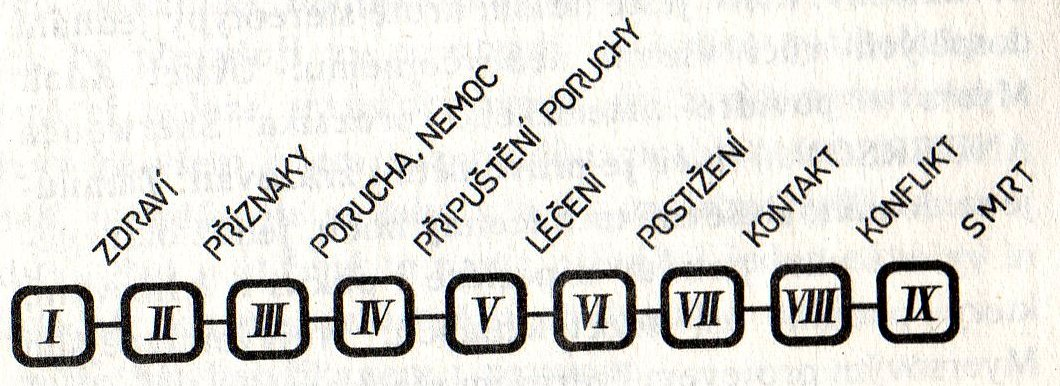 ZDRAVÍ
PŘÍZNAKY
PORUCHA, NEMOC
PŘIPUŠTĚNÍ PORUCHY
LÉČENÍ
POSTIŽENÍ
KONTAKT
KONFLIKT
SMRT
I II III IV V VI VII VIII IX